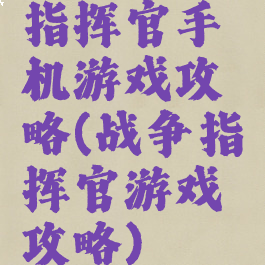 指挥官手
机游戏攻
略(战争指
挥官游戏
攻略)